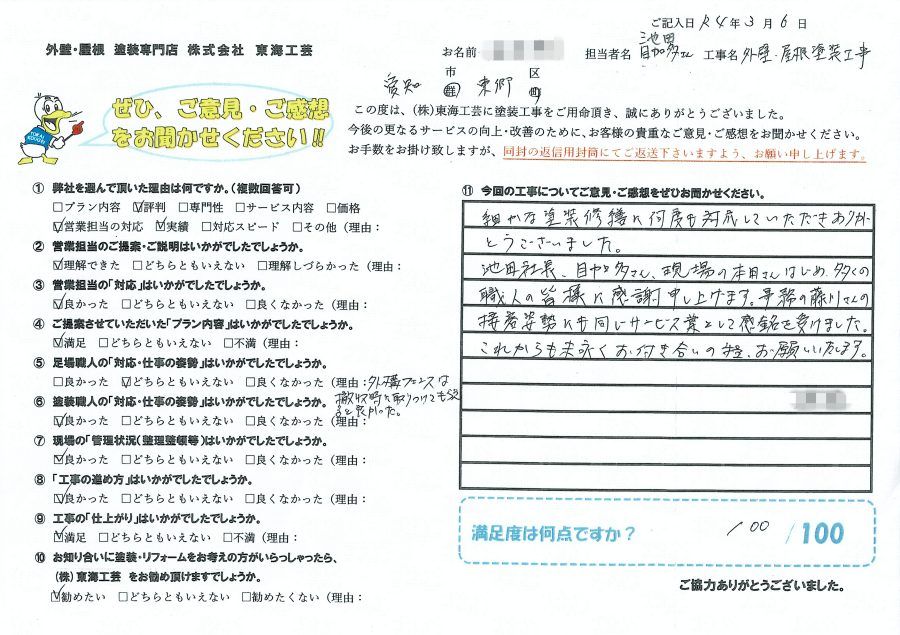 ご記入日 R4年3月6日
外壁・屋根 塗装専門店 株式会社 東海工芸
お名前
担当者名 池田 目加多さん 工事名 外壁・屋根塗装工事
愛知 市 郡 東郷 区 町
ぜひ、ご意見・ご感想
をお聞かせください!!
TOKAI KOUGEI
この度は、(株)東海工芸に塗装工事をご用命頂き、誠にありがとうございました。
今後の更なるサービスの向上・改善のために、お客様の貴重なご意見・ご感想をお聞かせください。
お手数をお掛け致しますが、同封の返信用封筒にてご返送下さいますよう、お願い申し上げます。
① 弊社を選んで頂いた理由は何ですか。(複数回答可)
□プラン内容 ☑評判 □専門性 □サービス内容 □価格
☑営業担当の対応 ☑実績 □対応スピード □その他(理由:
② 営業担当のご提案・ご説明はいかがでしたでしょうか。
☑理解できた □どちらともいえない □理解しづらかった(理由:
③ 営業担当の「対応」はいかがでしたでしょうか。
☑良かった □どちらともいえない □良くなかった(理由:
④ ご提案させていただいた「プラン内容」はいかがでしたでしょうか。
☑満足 □どちらともいえない □不満(理由:
⑤ 足場職人の「対応・仕事の姿勢」はいかがでしたでしょうか。
□良かった ☑どちらともいえない □良くなかった(理由:外構フェンスは
撤収時に取りつけても
ると良かった。
⑥ 塗装職人の「対応・仕事の姿勢」はいかがでしたでしょうか。
☑良かった □どちらともいえない □良くなかった(理由:
⑦ 現場の「管理状況(整理整頓等)はいかがでしたでしょうか。
☑良かった □どちらともいえない □良くなかった(理由:
⑧ 「工事の進め方」はいかがでしたでしょうか。
☑良かった □どちらともいえない □良くなかった(理由:
⑨ 工事の「仕上がり」はいかがでしたでしょうか。
☑満足 □どちらともいえない □不満(理由:
⑩ お知り合いに塗装・リフォームをお考えの方がいらっしゃったら、
(株)東海工芸 をお勧め頂けますでしょうか。
☑勧めたい □どちらともいえない □勧めたくない(理由:
⑪ 今回の工事についてご意見・ご感想をぜひお聞かせください。
細かな塗装修繕に何度も対応していただきありが
とうございました。
池田社長、目加多さん、現場の本田さんはじめ、多くの
職人の皆様に感謝申し上げます。事務の藤川さんの
接客姿勢にも同じサービス業として感銘を受けました。
これからも末永くお付き合いの程、お願いいたします。
満足度は何点ですか? 100/100
ご協力ありがとうございました。